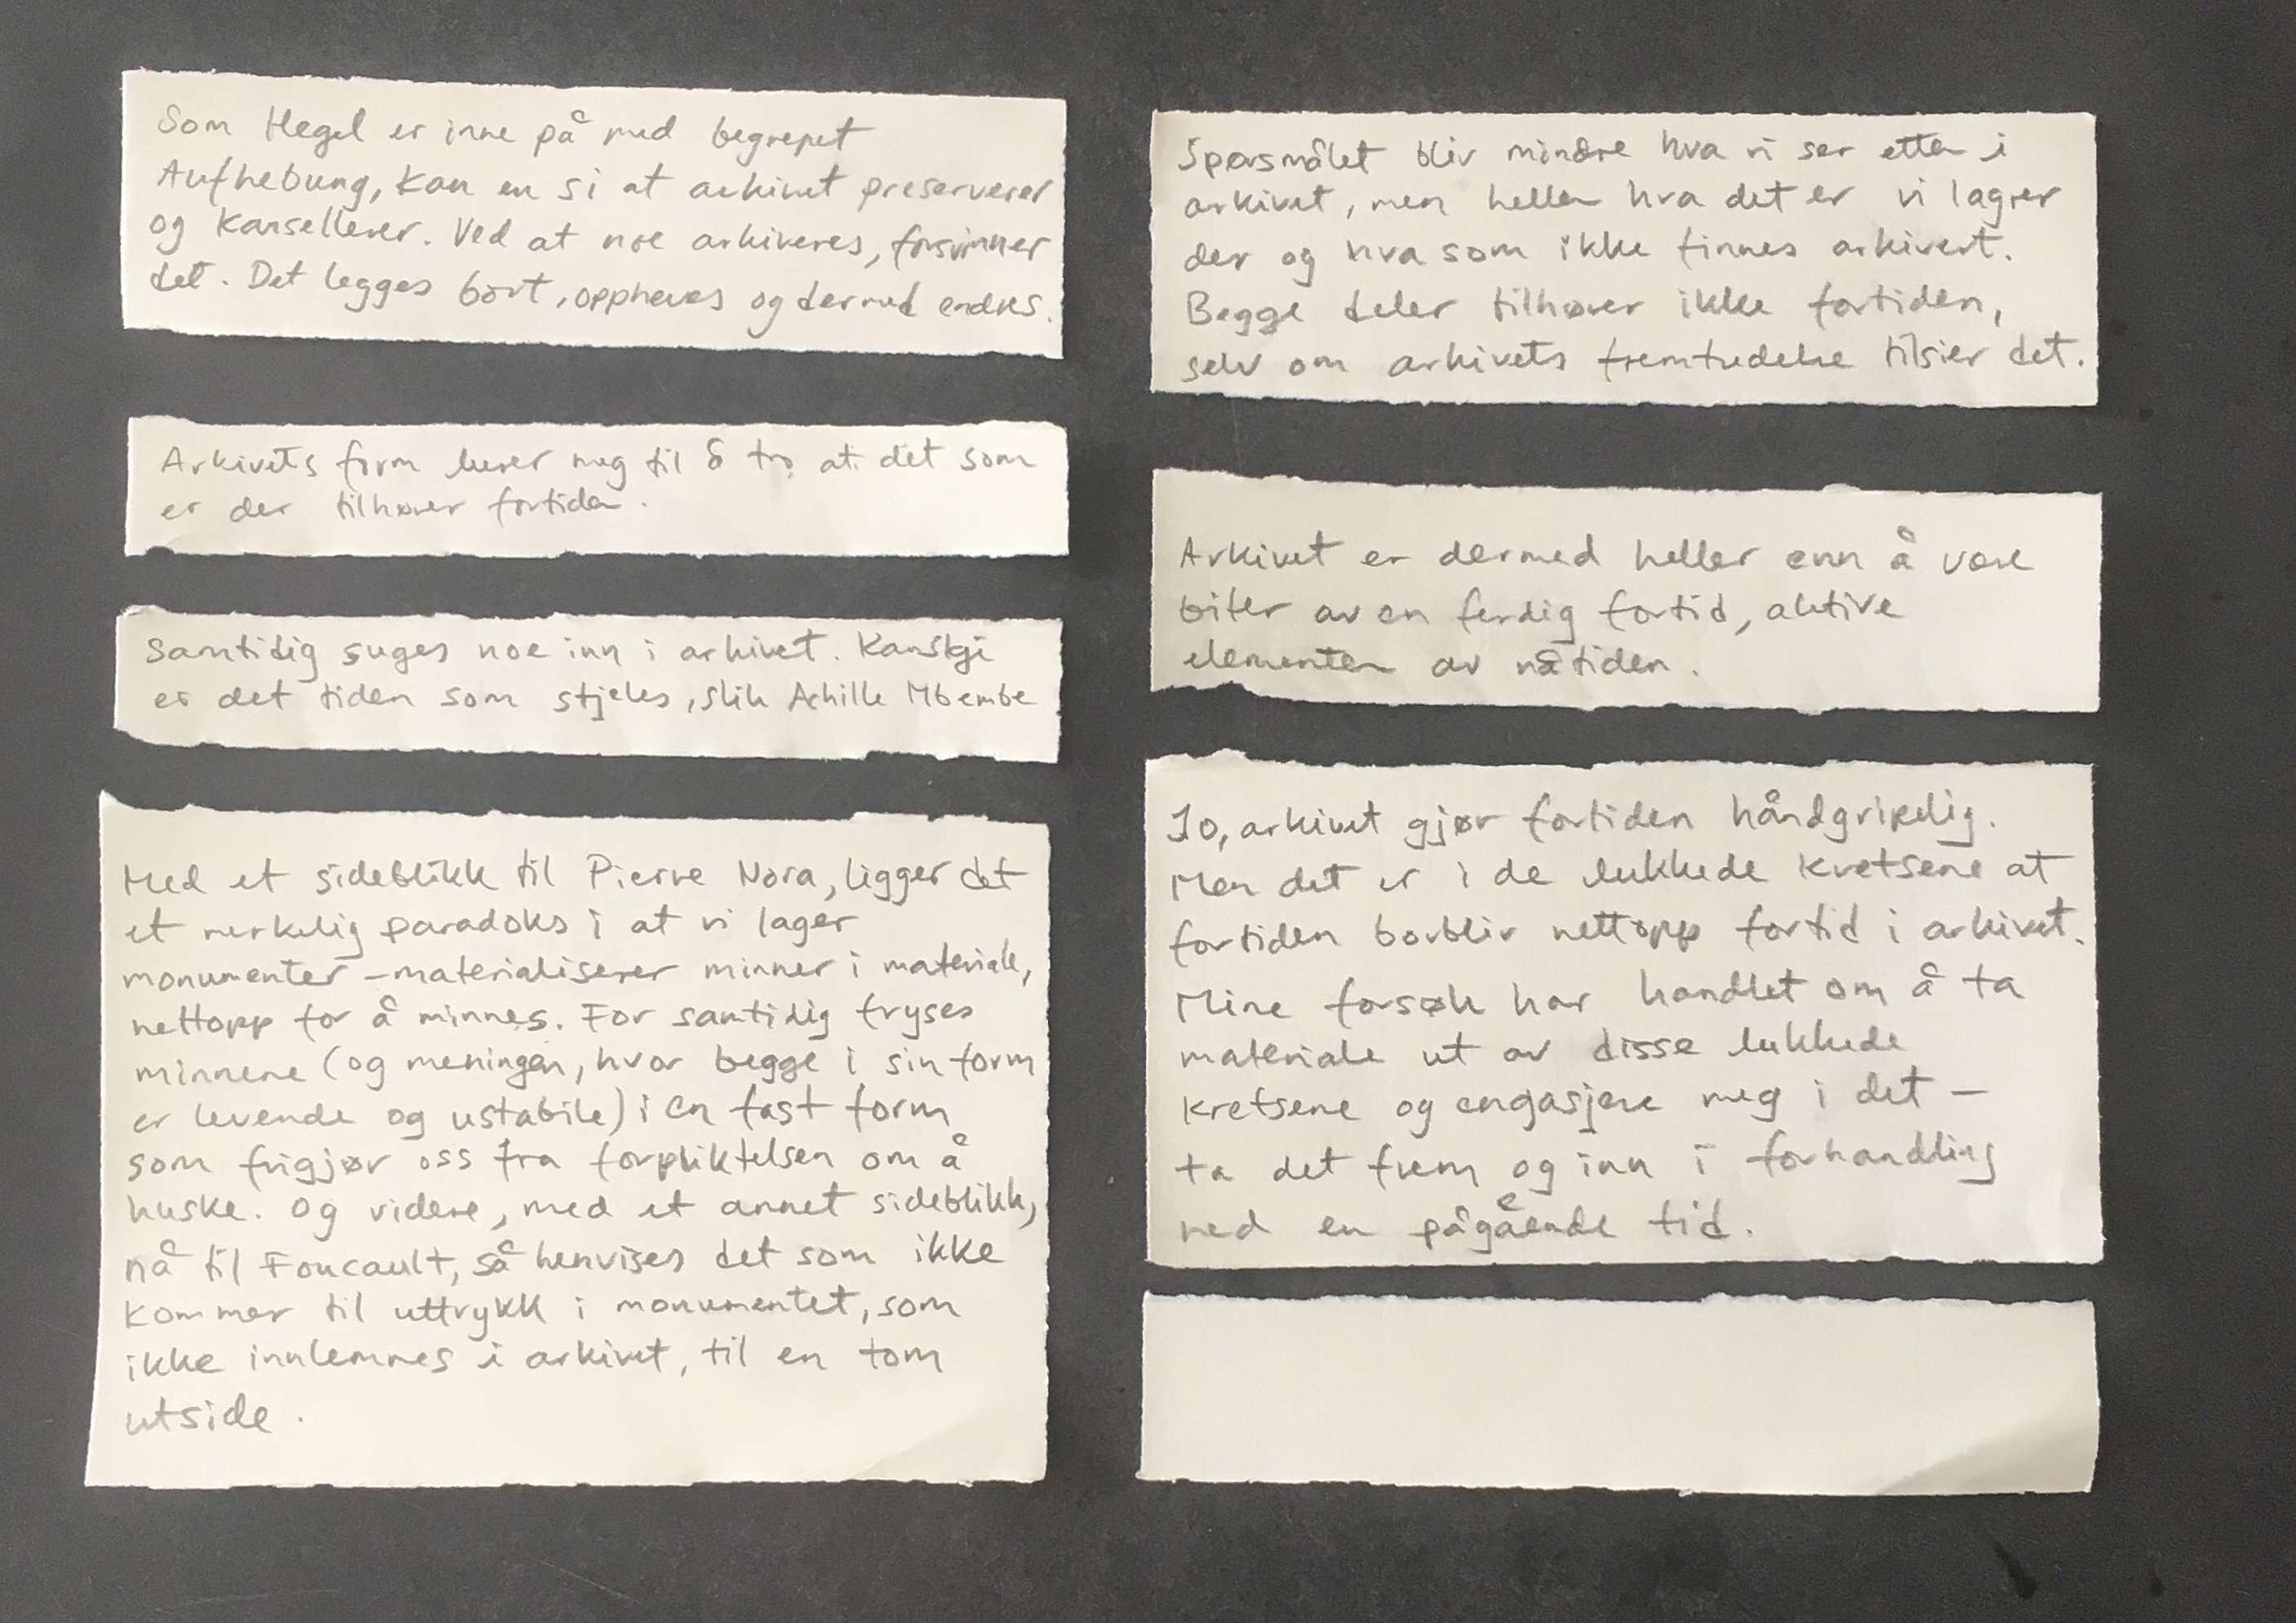 Som Hegel er inne på med begrepet
Aufhebung, kan en si at arkivet preserverer
og kansellerer. Ved at noe arkiveres, forsvinner
det. Det legges bort, oppheves og dermed endres.
Arkivets form lurer meg til å tro at det som
er der tilhører fortiden.
Samtidig suges noe inn i arkivet. Kanskje
er det tiden som stjeles, slik Achille Mbembe
Med et sideblikk til Pierre Nora, ligger det
et merkelig paradoks i at vi lager
monumenter – materialiserer minner i materiale,
nettopp for å minnes. For samtidig fryses
minnene (og meningen, hvor begge i sin form
er levende og ustabile) i en fast form
som frigjør oss fra forpliktelsen om å
huske. Og videre, med et annet sideblikk,
nå til Foucault, så henvises det som ikke
kommer til uttrykk i monumentet, som
ikke innlemmes i arkivet, til en tom
utside.
Spørsmålet blir mindre hva vi ser etter i
arkivet, men heller hva det er vi lagrer
der og hva som ikke finnes arkivert.
Begge deler tilhører ikke fortiden,
selv om arkivets fremtredelse tilsier det.
Arkivet er dermed heller enn å være
biter av en ferdig fortid, aktive
elementer av nåtiden.
Jo, arkivet gjør fortiden håndgripelig.
Men det er i de lukkede kretsene at
fortiden forblir nettopp fortid i arkivet.
Mine forsøk har handlet om å ta
materiale ut av disse lukkede
kretsene og engasjere meg i det –
ta det frem og inn i forhandling
med en pågående tid.